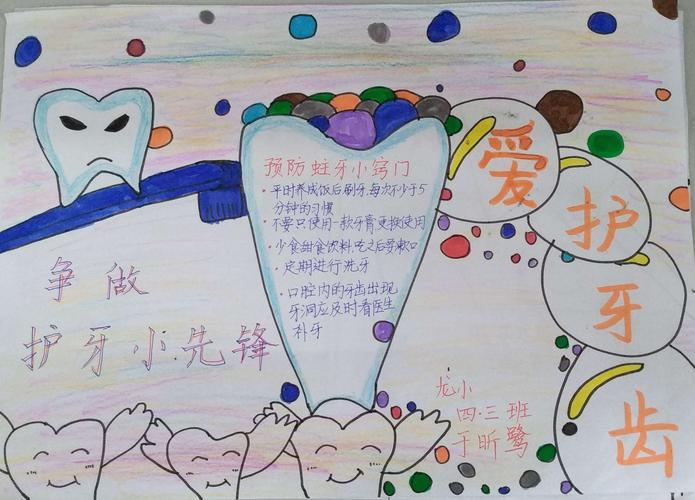 爱护牙齿
预防蛀牙小窍门
·平时养成饭后刷牙,每次不少于5
分钟的习惯
·不要只使用一款牙膏更换使用
·少食甜食饮料,吃之后要漱口
·定期进行洗牙
·口腔内的牙齿出现
牙洞应及时看医生
补牙
争做
护牙小先锋
龙小
四·三班
于昕鹭